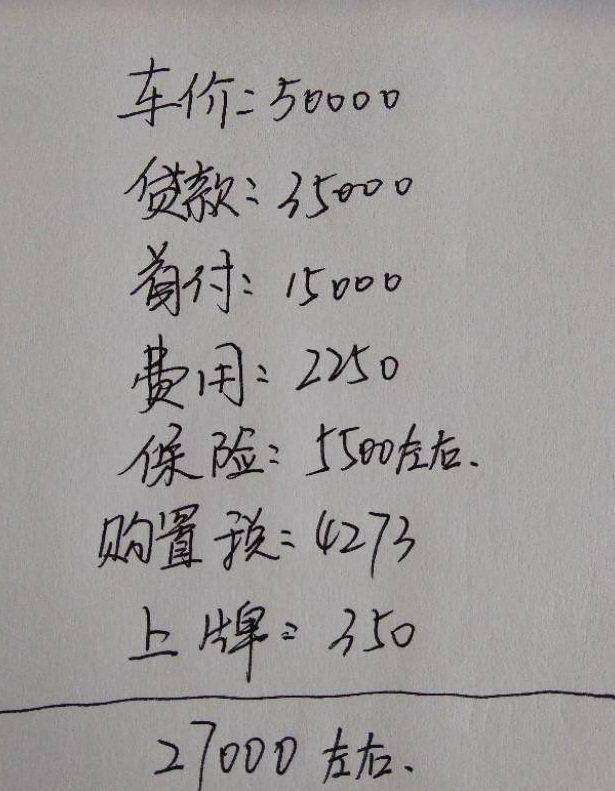 车价：50000
贷款：35000
首付：15000
费用：2250
保险：5500左右.
购置税：4273
上牌：350
27000左右.